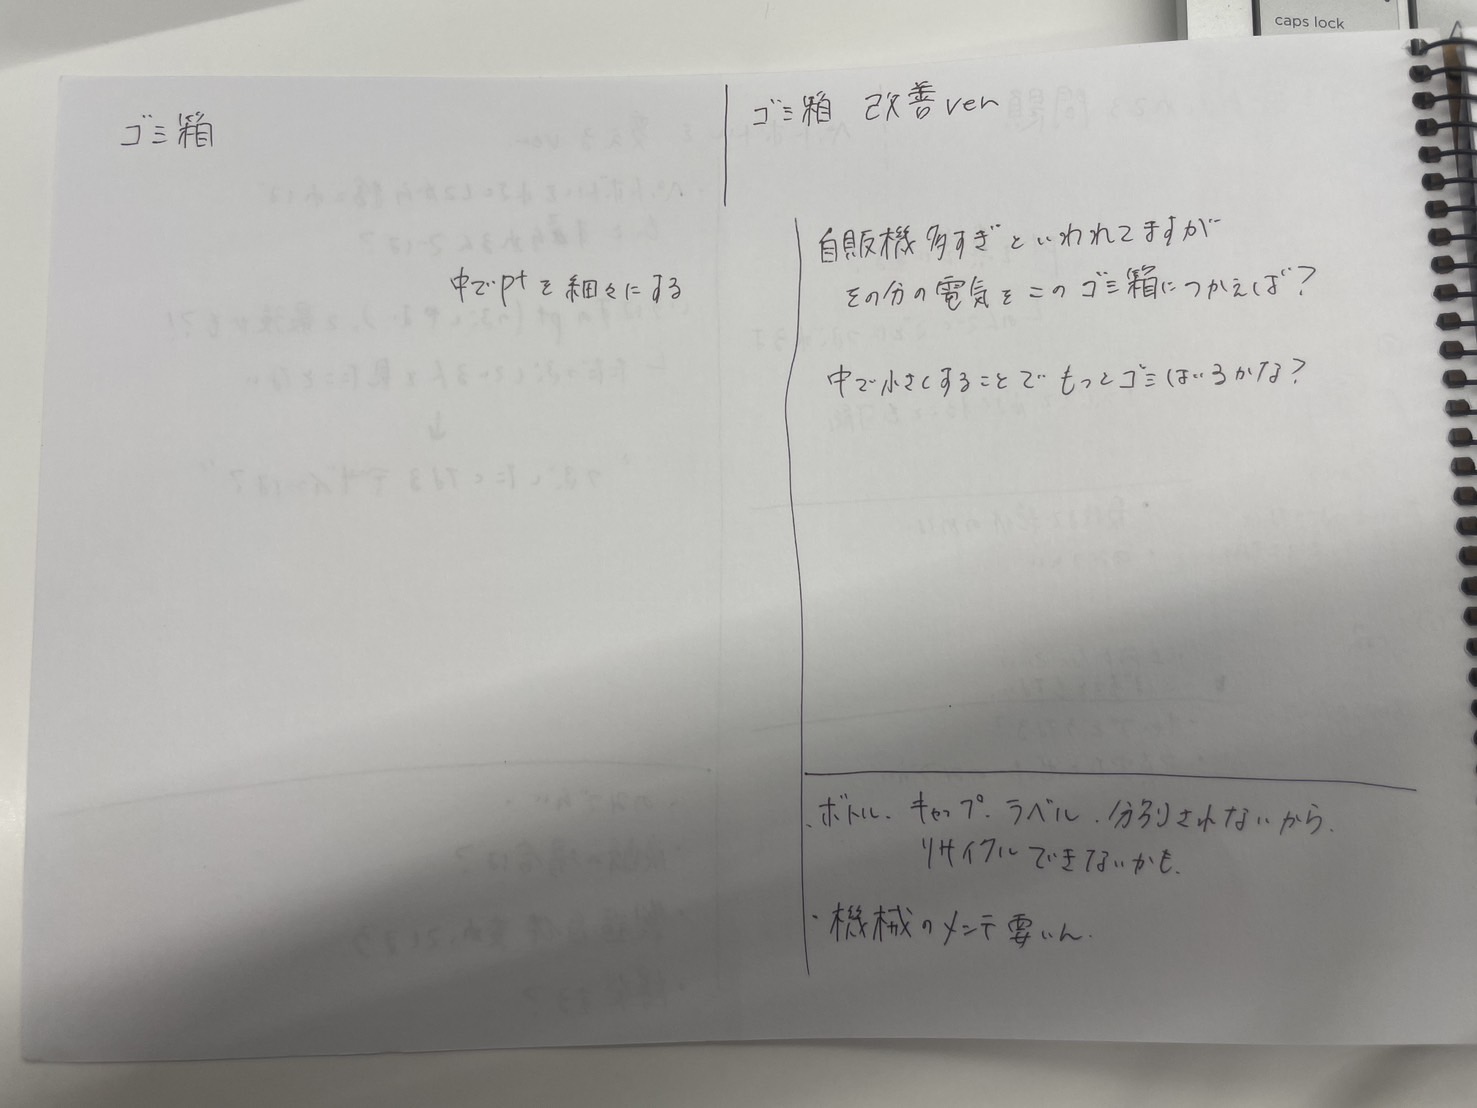 caps lock
ゴミ箱
中でptを細々にする
ゴミ箱 改善ver
自販機多すぎといわれてますが
その分の電気をこのゴミ箱につかえば?
中で小さくすることでもっとゴミはいるかな?
・ボトル、キャップ、ラベル、分別されないから、
リサイクルできないかも。
・機械のメンテ要いん。